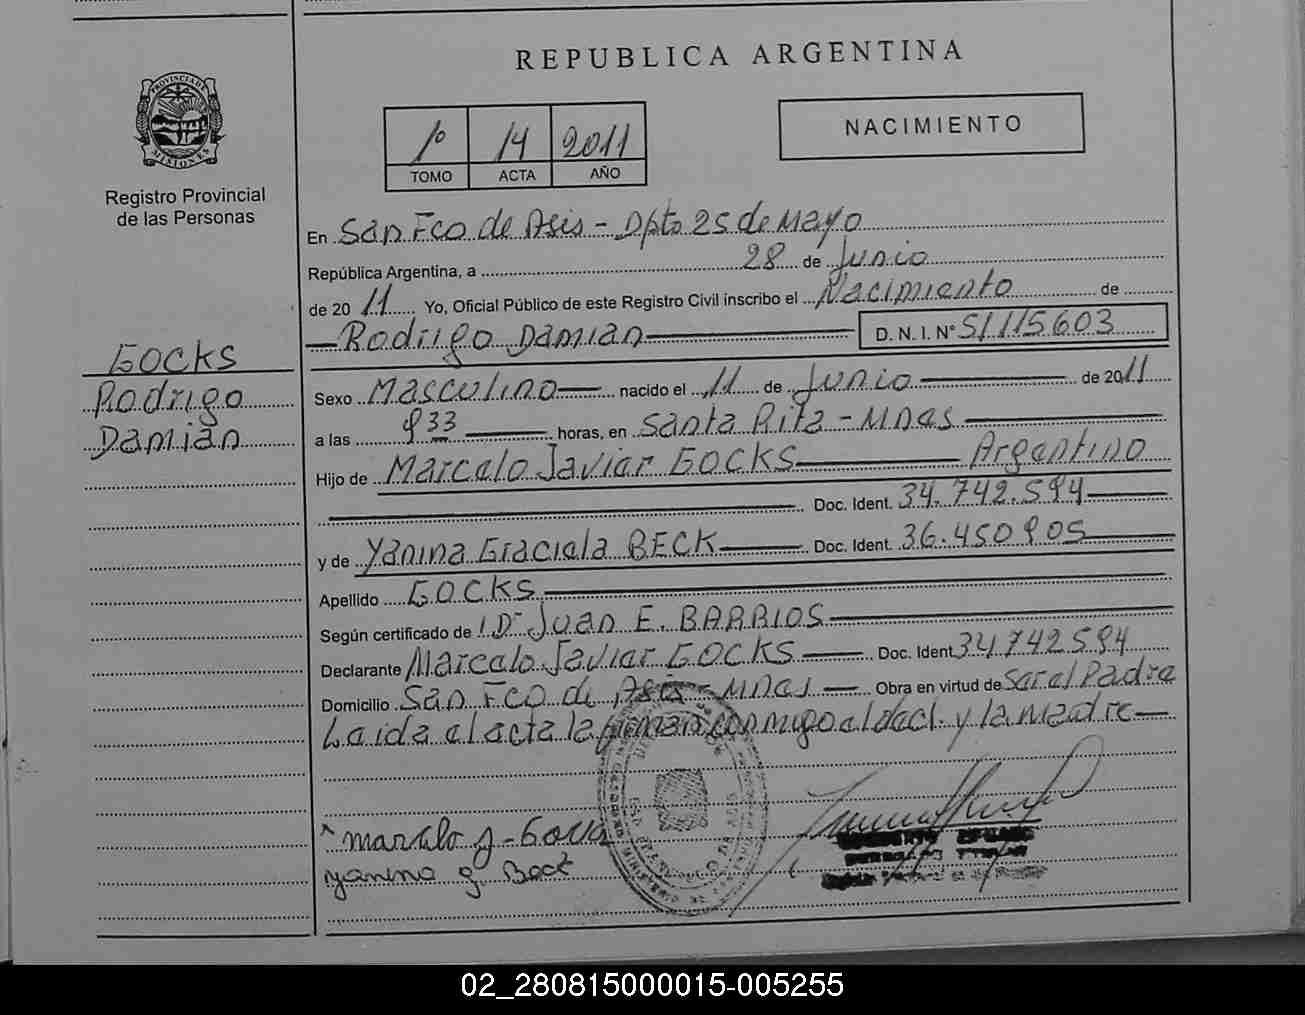 REPUBLICA ARGENTINA
PROVINCIA DE MISIONES
Registro Provincial
de las Personas
1º 14 2011
TOMO ACTA AÑO
NACIMIENTO
GOCKS
Rodrigo
Damián
En San Fco de Asis - Dpto 25 de Mayo
República Argentina, a 28 de Junio
de 2011 Yo, Oficial Público de este Registro Civil inscribo el Nacimiento de
Rodrigo Damian D.N.I. Nº 51115603
Sexo Masculino nacido el 11 de Junio de 2011
a las 933 horas, en Santa Rita - Mnes
Hijo de Marcelo Javier GOCKS Argentino
Doc. Ident. 34.742.594
y de Yanina Graciela BECK Doc. Ident. 36.450905
Apellido GOCKS
Según certificado de Dr Juan E. BARRIOS
Declarante Marcelo Javier GOCKS Doc. Ident 34742594
Domicilio San Fco de Asis - Mnes Obra en virtud de Ser el Padre
Leida el acta la firman conmigo el decl. y la madre
Marcelo J - Gocks
Yanina g. Beck
02_280815000015-005255